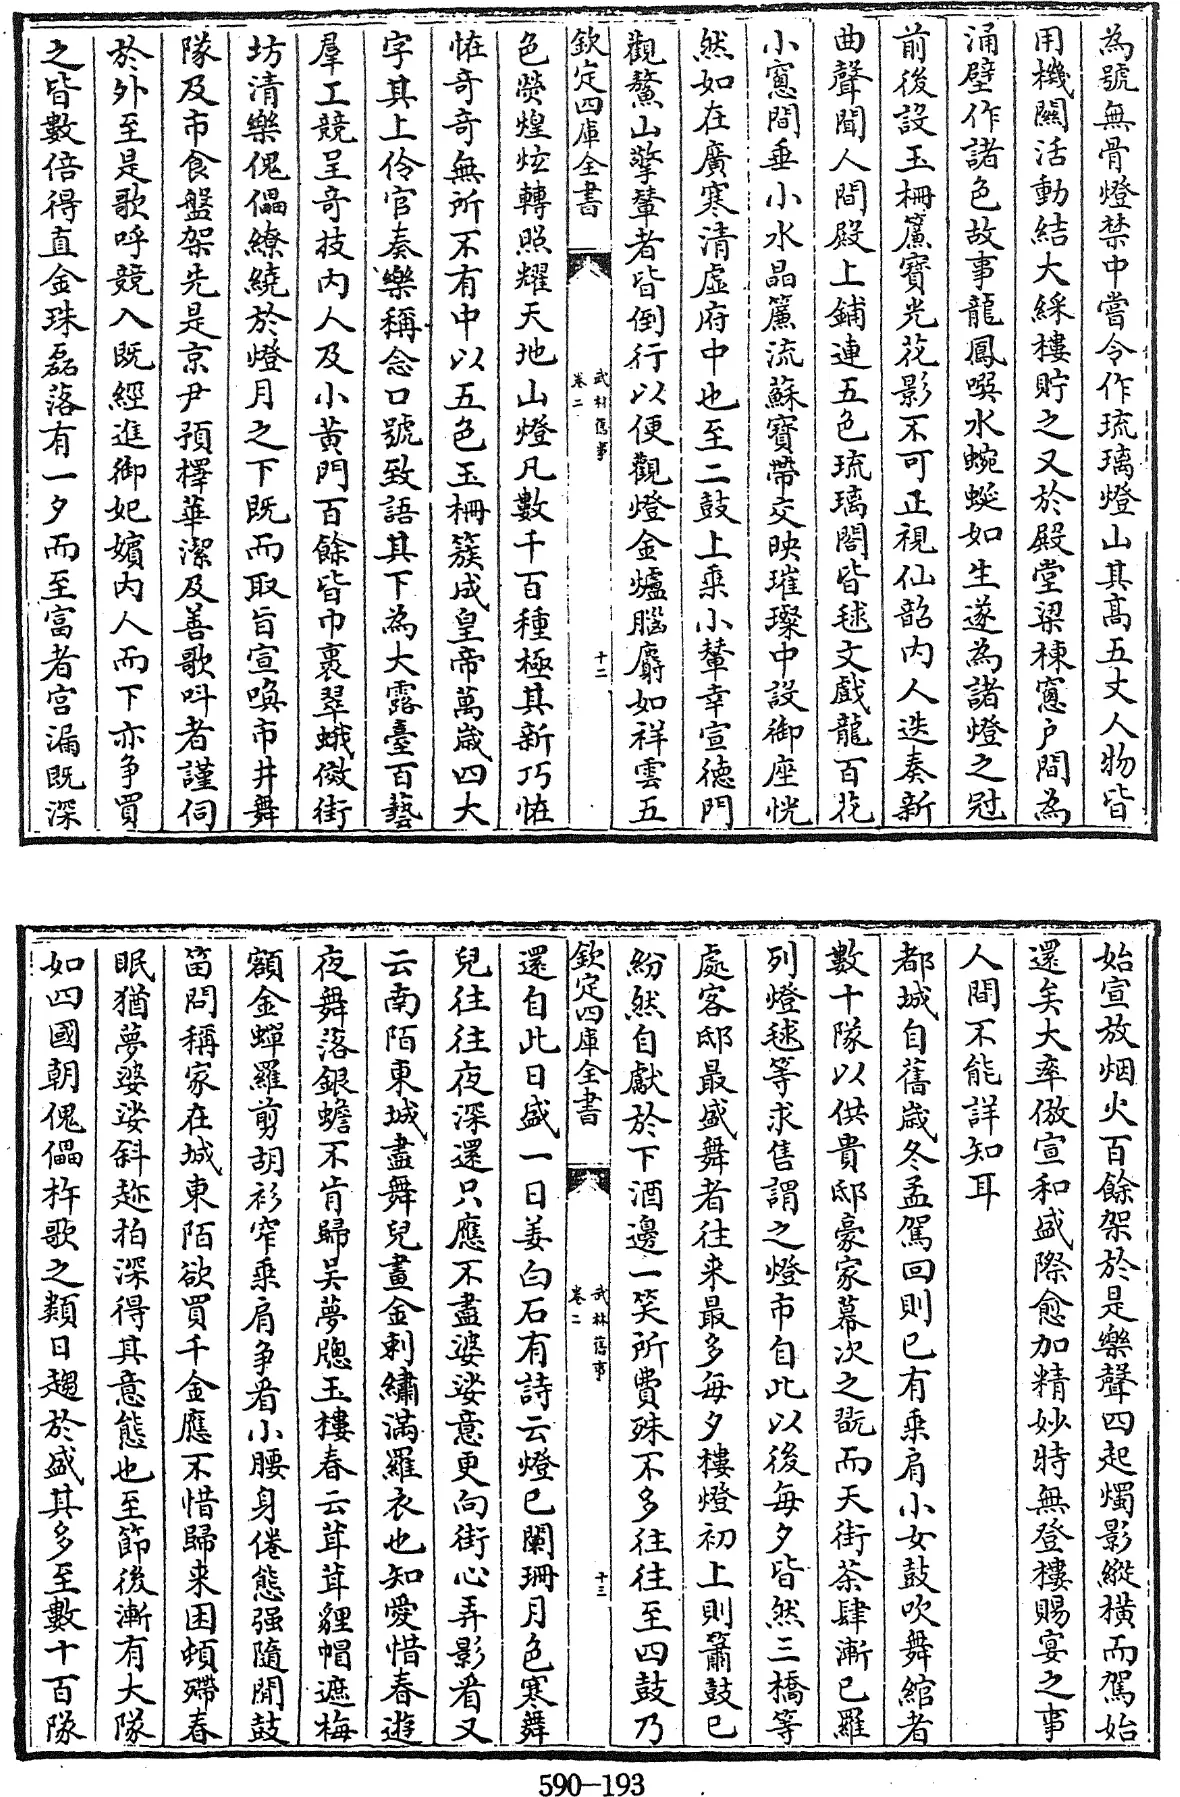 為號無骨燈禁中嘗令作琉璃燈山其髙五丈人物皆
用機關活動結大綵樓貯之又於殿堂梁棟窻户間為
涌壁作諸色故事龍鳳噀水蜿蜒如生遂為諸燈之冠
前後設玉柵簾寶光花影不可正視仙韶内人迭奏新
曲聲聞人間殿上鋪連五色琉璃閣皆毬文戲龍百花
小窻間垂小水晶簾流蘇寶帶交映璀璨中設御座恍
然如在廣寒清虛府中也至二鼓上乘小輦幸宣德門
觀鰲山擎輦者皆倒行以便觀燈金爐腦麝如祥雲五
欽定四庫全書
武林舊事
卷二
十二
色熒煌炫轉照耀天地山燈凡數千百種極其新巧恠
恠竒竒無所不有中以五色玉柵簇成皇帝萬歲四大
字其上伶官奏樂稱念口號致語其下為大露臺百藝
羣工競呈竒技内人及小黄門百餘皆巾裹翠蛾傚街
坊清樂傀儡繚繞於燈月之下既而取旨宣喚市井舞
隊及市食盤架先是京尹預擇華潔及善歌呌者謹伺
於外至是歌呼競入既經進御妃嬪内人而下亦争買
之皆數倍得直金珠磊落有一夕而至富者宫漏既深
始宣放烟火百餘架於是樂聲四起燭影縱横而駕始
還矣大率倣宣和盛際愈加精妙時無登樓賜宴之事
人間不能詳知耳
都城自舊歲冬孟駕回則已有乘肩小女鼓吹舞綰者
數十隊以供貴邸豪家幕次之翫而天街茶肆漸已羅
列燈毬等求售謂之燈市自此以後每夕皆然三橋等
處客邸最盛舞者往来最多每夕樓燈初上則簫鼓已
紛然自獻於下酒邊一笑所費殊不多往往至四鼓乃
欽定四庫全書
武林舊事
卷二
十三
還自此日盛一日姜白石有詩云燈已闌珊月色寒舞
兒往往夜深還只應不盡婆娑意更向街心弄影看又
云南陌東城盡舞兒畫金刺繡滿羅衣也知愛惜春遊
夜舞落銀蟾不肯歸吴夢牕玉樓春云茸茸貍帽遮梅
額金蟬羅剪胡衫窄乘肩争看小腰身倦態强隨閒鼓
笛問稱家在城東陌欲買千金應不惜歸来困頓殢春
眠猶夢婆娑斜趂拍深得其意態也至節後漸有大隊
如四國朝傀儡杵歌之類日趨於盛其多至數十百隊
590-193